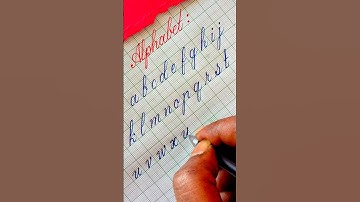 Alphabet:
a b c d e f g h i j
k l m n o p q r s t
u v w x y